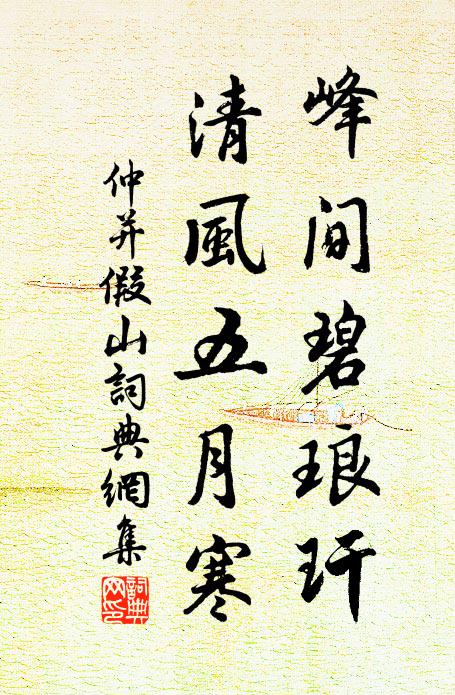 峰間碧琅玕
清風五月寒
仲并假山詞典網集
詞典網印